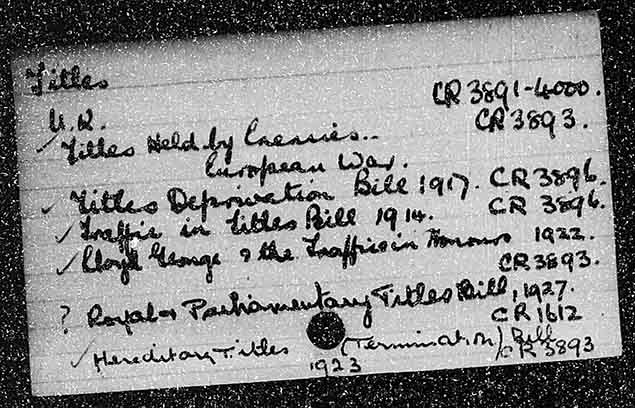 Titles
CR 3891-4000.
U.K.
CR 3893.
✓ Titles Held by Enemies..
European War.
✓ Titles Deprivation Bill 1917. CR 3896.
✓ Traffic in Titles Bill 1914. CR 3896.
✓ Lloyd George & the Traffic in Honours 1922.
CR 3893.
? Royal & Parliamentary Titles Bill, 1927.
CR 1612
✓ Hereditary Titles (Termination) Bill
1923 CR 3893